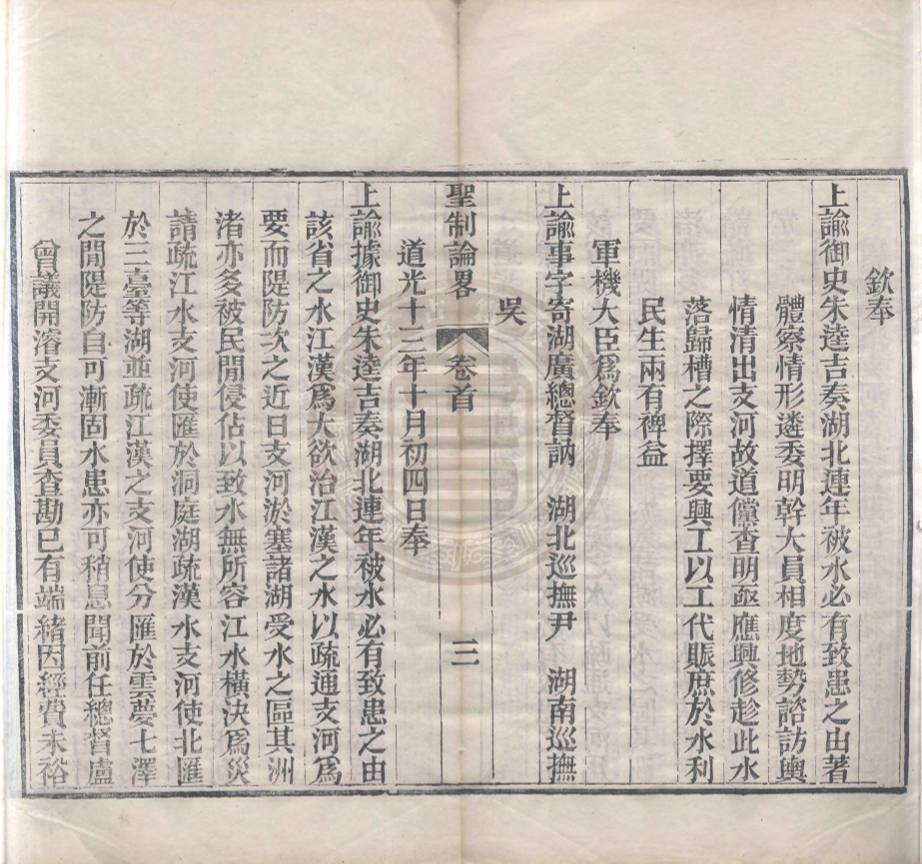 欽奉
上諭御史朱逵吉奏湖北連年被水必有致患之由著
體察情形遴委明幹大員相度地勢諮訪輿
情清出支河故道儻查明亟應興修趁此水
落歸槽之際擇要興工以工代賑庶於水利
民生兩有裨益
軍機大臣爲欽奉
上諭事字寄湖廣總督訥 湖北巡撫尹 湖南巡撫
吳
聖制論畧 卷首 三
道光十三年十月初四日奉
上諭據御史朱逵吉奏湖北連年被水必有致患之由
該省之水江漢爲大欲治江漢之水以疏通支河爲
要而隄防次之近日支河淤塞諸湖受水之區其洲
渚亦多被民閒侵佔以致水無所容江水橫決爲災
請疏江水支河使匯於洞庭湖疏漢水支河使北匯
於三臺等湖並疏江漢之支河使分匯於雲夢七澤
之閒隄防自可漸固水患亦可稍息聞前任總督盧
曾議開濬支河委員查勘已有端緒因經費未裕